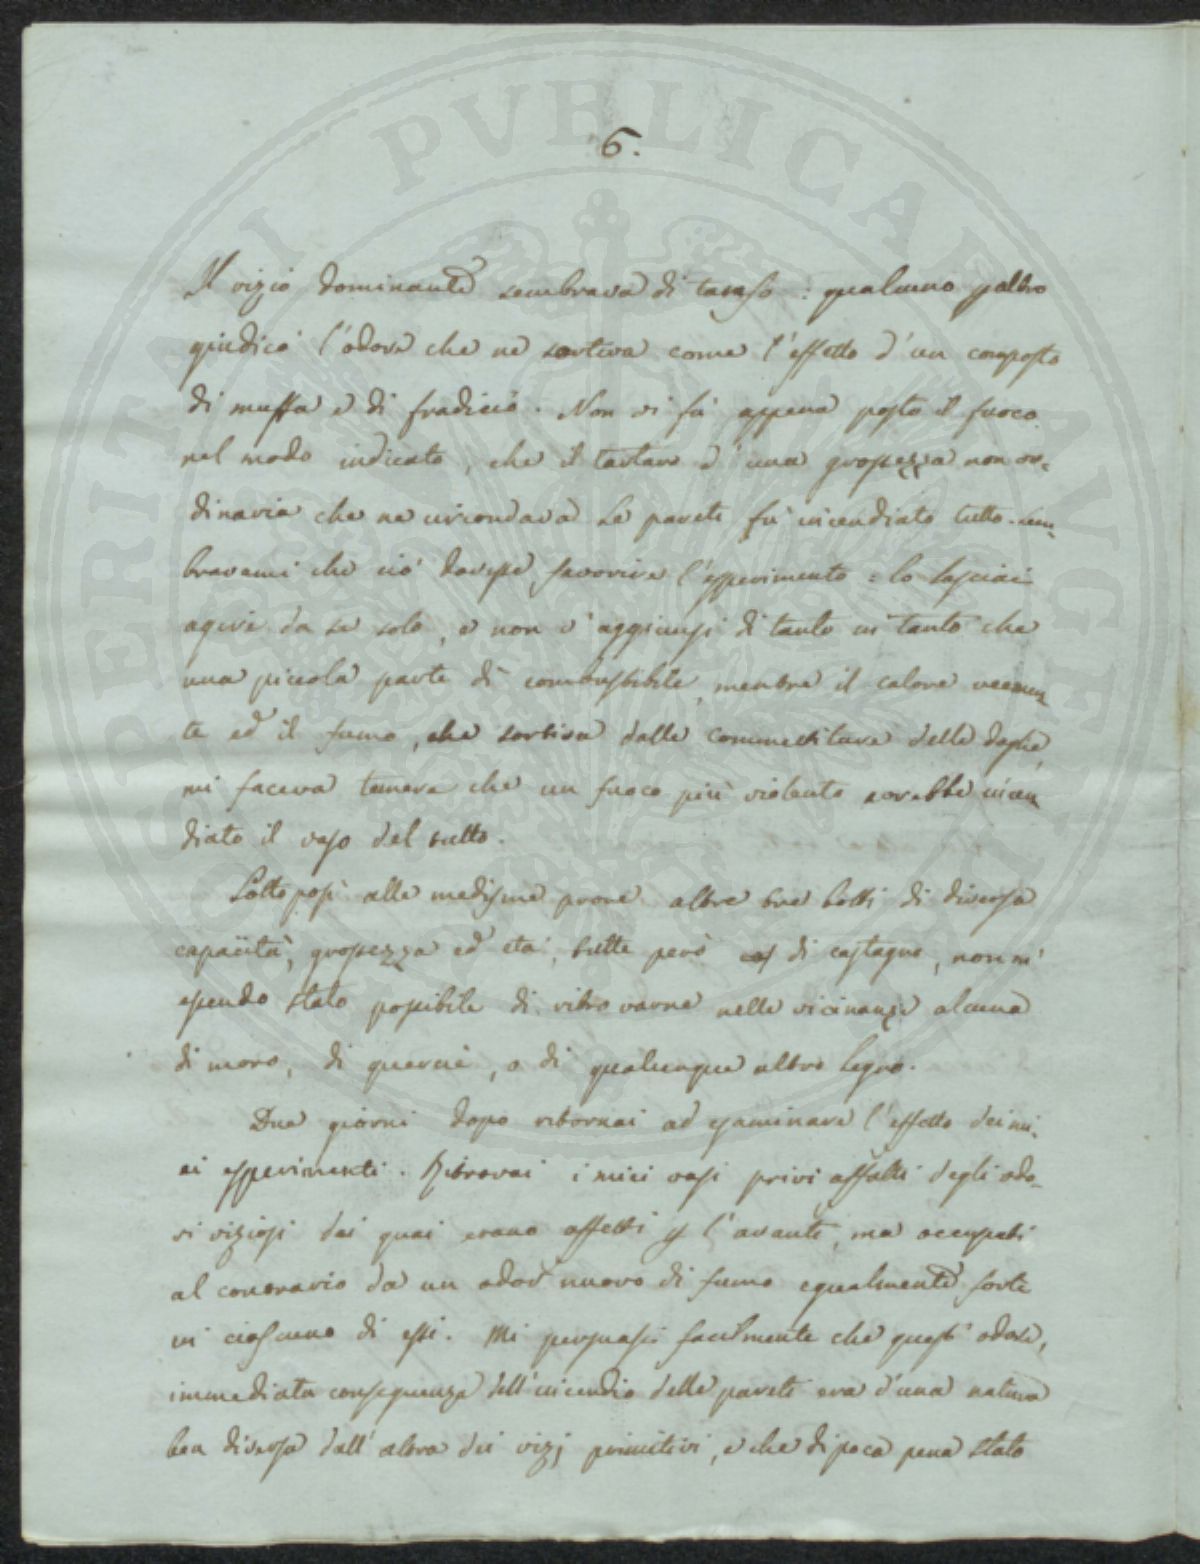 6.
Il vizio dominante sembrava di tanfo : qualcuno peraltro
giudicò l'odore che ne sortiva come l'effetto d'un composto
di muffa e di fradicio. Non vi fù appena posto il fuoco
nel modo indicato, che il tartaro d'una grossezza non or-
dinaria che ne circondava le pareti fù incendiato tutto. Sem-
bravami che ciò dovesse favorire l'esperimento : lo lasciai
agire da se solo, e non v'aggiunsi di tanto in tanto che
una piccola parte di combustibile, mentre il calore veemen-
te ed il fumo, che sortiva dalle commettiture delle doghe,
mi faceva temere che un fuoco più violento avrebbe incen-
diato il vaso del tutto.
Sottoposi alle medesime prove altre tre botti di diversa
capacità, grossezza ed età, tutte però di castagno, non m'
essendo stato possibile di ritrovarne nelle vicinanze alcuna
di moro, di quercie, o di qualunque altro legno.
Due giorni dopo ritornai ad esaminare l'effetto dei mi-
ei esperimenti. Ritrovai i miei vasi privi affatti degli odo-
ri viziosi dai quai erano affetti per l'avante, ma occupati
al contrario da un odor nuovo di fumo egualmente forte
in ciascuno di essi. Mi persuasi facilmente che questi odori,
immediata conseguenza dell'incendio delle pareti era d'una natura
ben diversa dall'altra dei vizj primitivi, e che di poca pena stato